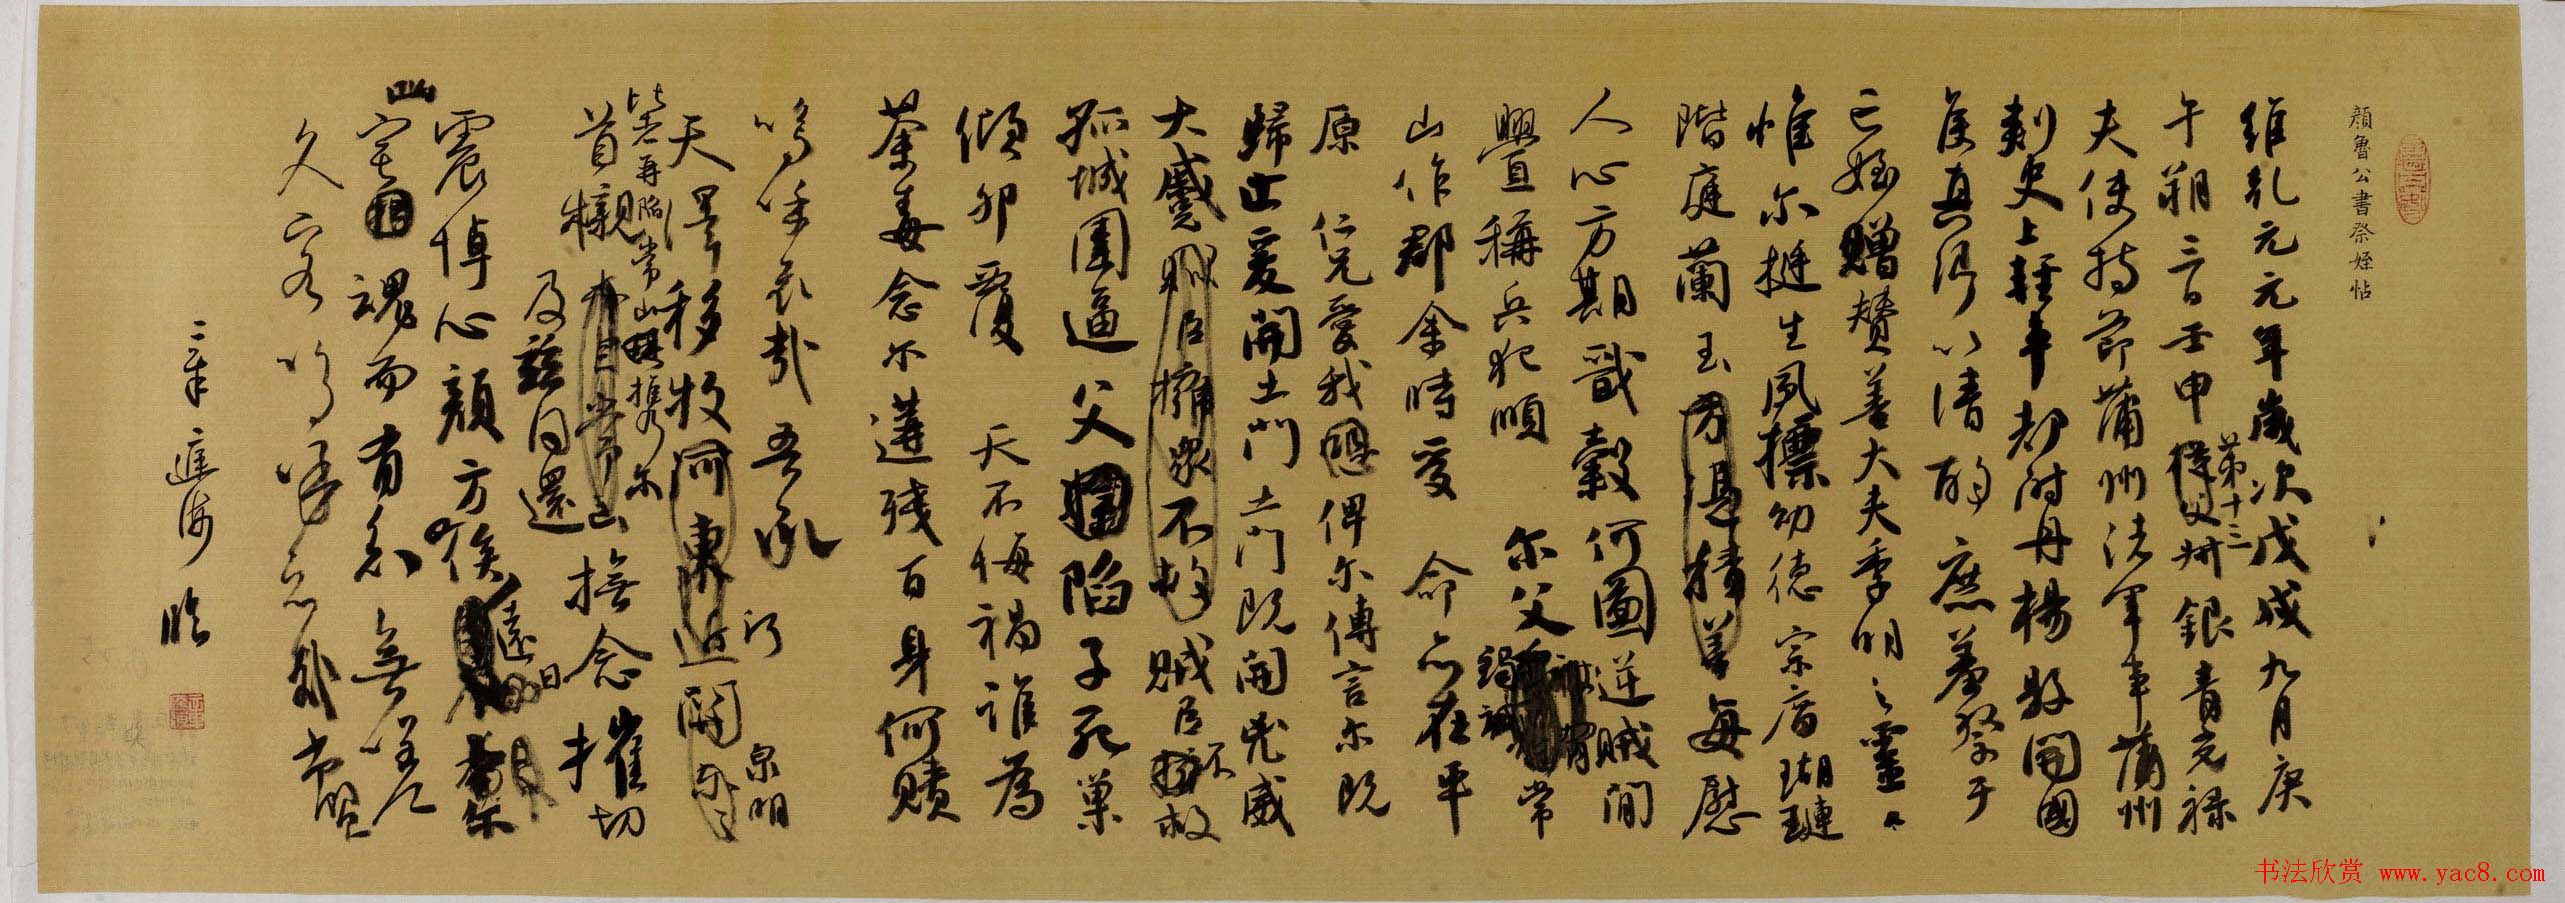 顔魯公書祭姪帖
維乾元元年歲次戊戌九月庚
午朔三日壬申第十三叔銀青光禄
夫使持節蒲州諸軍事蒲州
刺史上輕車都尉丹楊縣開國
侯真卿以清酌庶羞祭于
亡姪贈贊善大夫季明之靈
惟尔挺生夙標幼德宗廟瑚璉
階庭蘭玉方憑積善每慰
人心方期戩穀何圖逆賊閒
舋稱兵犯順尔父竭誠常
山作郡余時受命亦在平
原仁兄愛我俾尔傳言尔既
歸止爰開土門土門既開凶威
大蹙賊臣擁衆不救賊臣不救
孤城圍逼父陷子死巢
傾卵覆天不悔禍誰為
荼毒念尔遘殘百身何贖
嗚呼哀哉吾承
天澤移牧河東近泉明
比者再陷常山攜尔
首櫬及兹同還撫念摧切
震悼心顔方俟遠日
卜尔幽宅魂而有知無嗟
久客嗚呼哀哉尚饗
進海臨
书法欣赏 www.yac8.com